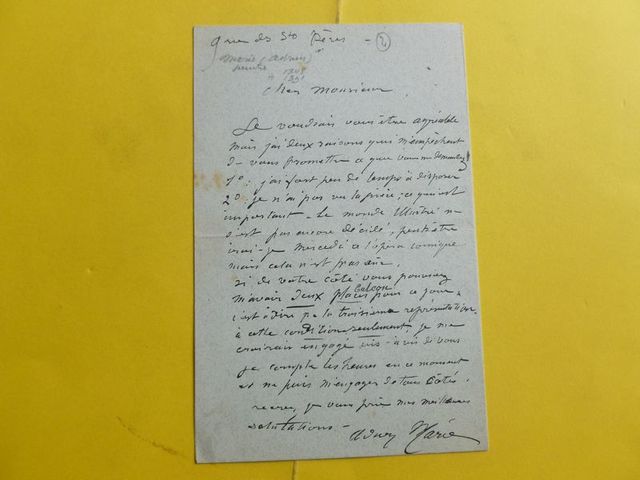 9 rue des Sts Pères - 2
Marie (Adrien)
peintre
Cher Monsieur
Je voudrais vous être agréable
mais j'ai deux raisons qui m'empêchent
de vous promettre ce que vous me demandez
1o; j'ai fort peu de temps à disposer
2o je n'ai pas vu la pièce; ce qui est
important - Le monde illustré ne
s'est pas encore décidé, peut être
irai-je mercredi à l'opéra comique
mais cela n'est pas sûr.
si de votre côté vous pouviez
m'avoir deux places balcon pour ce jour,
c'est à dire pr la troisième représentation
à cette condition seulement je me
croirais engagé vis-à-vis de vous
je compte les heures en ce moment
et ne puis m'engager de tous côtés.
recevez, je vous prie mes meilleures
salutations -
Adrien Marie